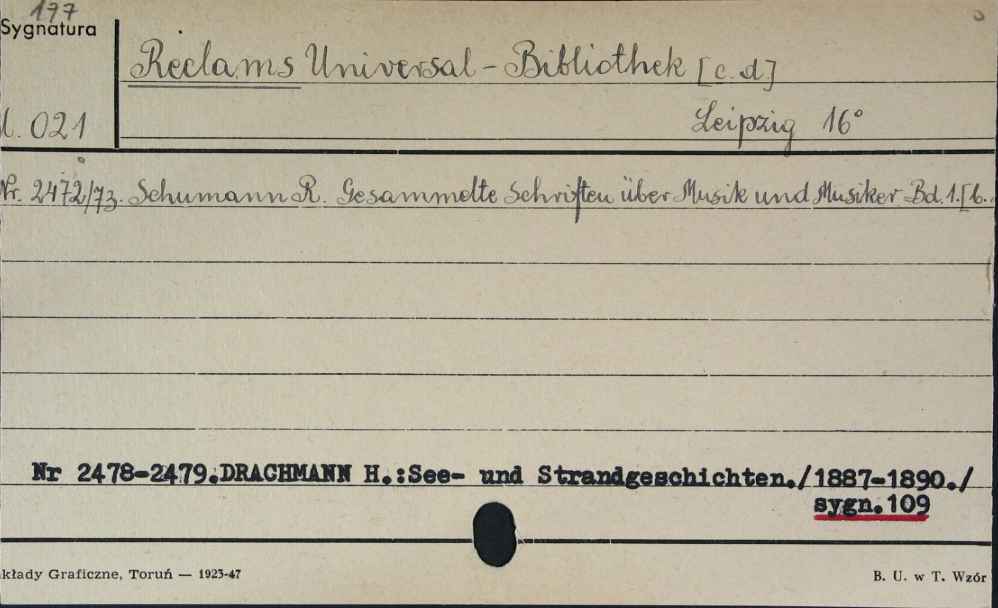 177
Sygnatura
Reclams Universal-Bibliothek [c.d]
l. 021
Leipzig 16°
Nr. 2472/73. Schumann R. Gesammelte Schriften über Musik und Musiker Bd. 1. [b.
Nr 2478-2479.DRACHMANN H.:See- und Strandgeschichten./1887-1890./
sygn.109
kłady Graficzne, Toruń — 1923-47
B. U. w T. Wzór